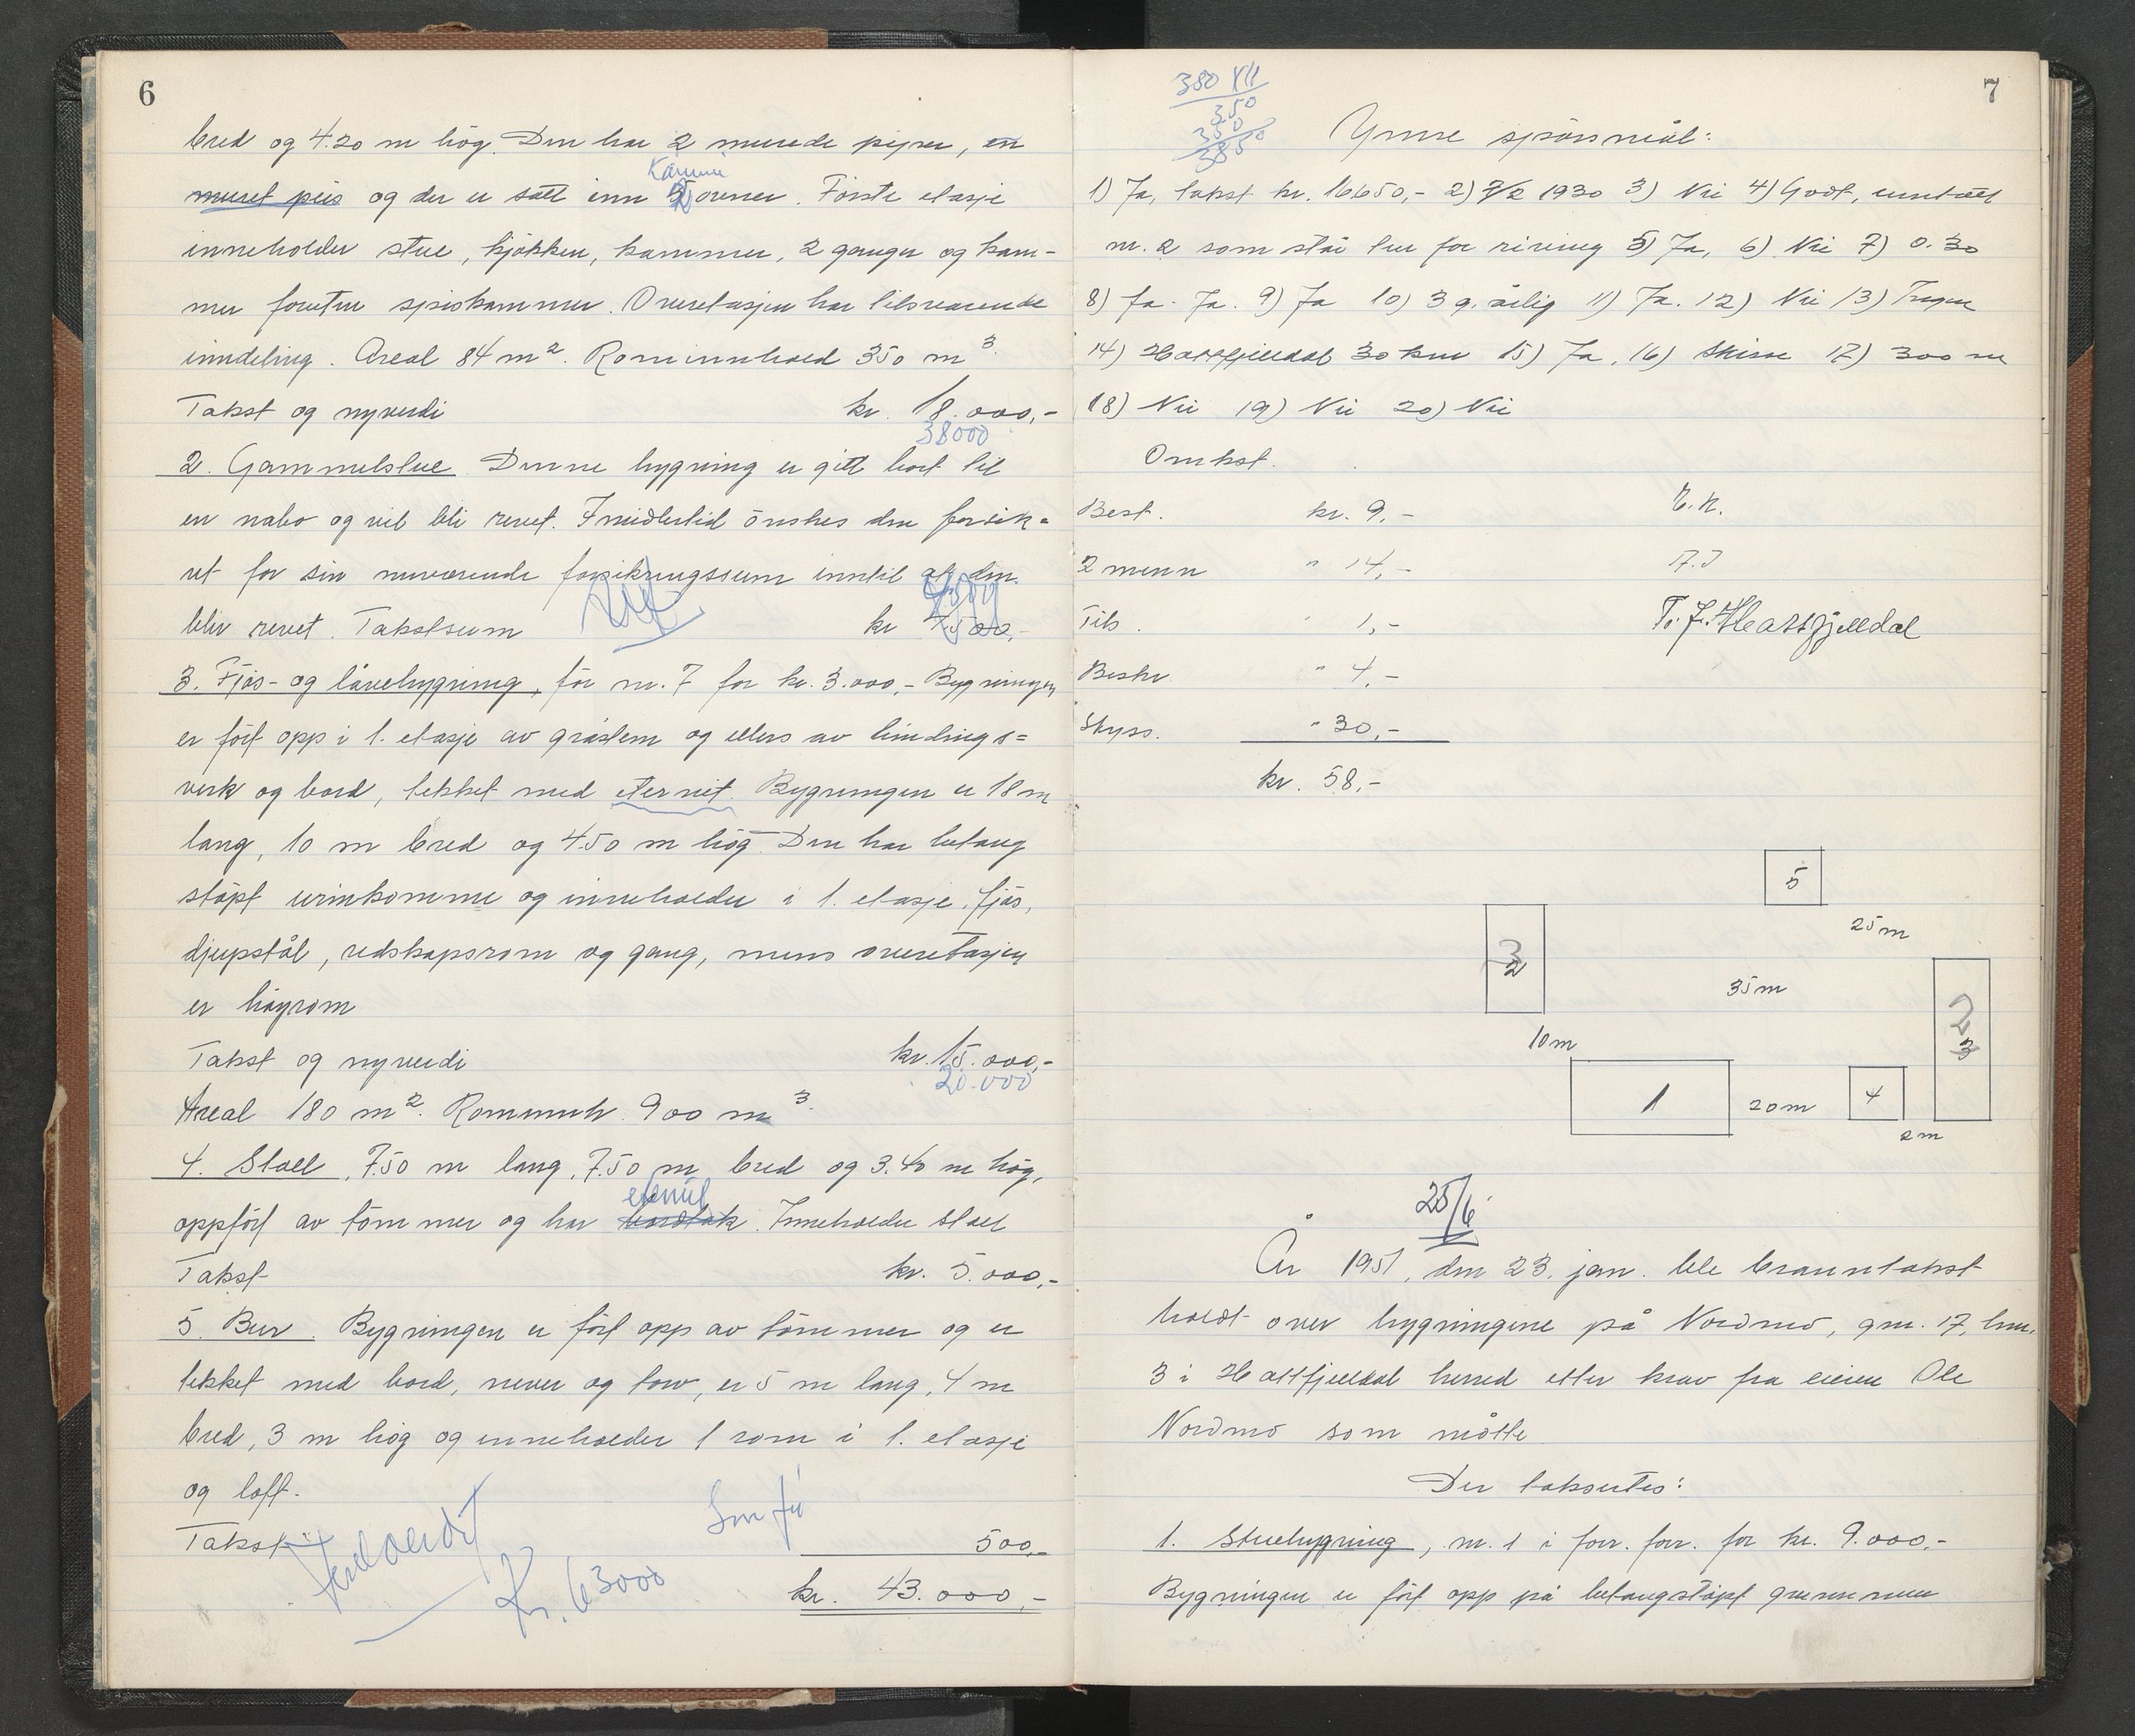 6
bred og 4.20 m hög. Den har 2 murede piper, en
Kamin
muret peis og der er satt inn 2 ovner. Förste etasje
inneholder stue, kjökken, kammer, 2 ganger og kam-
mer foruten spiskammer. Overetasjen har tilsvarende
inndeling. Areal 84 m². Rominnhold 350 m³.
Takst og nyverdi kr. 18.000,-
38000
2. Gammelstue. Denne bygning er gitt bort til
en nabo og vil bli revet. Imidlertid önskes den forsik=
ret for sin nuværende forsikringssum inntil at den
blir revet. Takstsum kr 4500,-
3. Fjös- og låvebygning, för nr. 7 for kr. 3.000,- Bygningen
er fört opp i 1. etasje av gråstein og ellers av bindings=
verk og bord, tekket med eternit. Bygningen er 18 m
lang, 10 m bred og 4.50 m hög. Den har betong
stöpt urinkomme og inneholder i 1. etasje fjös,
djupstål, redskapsrom og gang, mens overetasjen
er höyrom
Takst og nyverdi kr. 15.000,-
20.000
Areal 180 m². Rominnh. 900 m³.
4. Stall, 7.50 m lang, 7.50 m bred og 3.40 m hög,
eternit
oppfört av tömmer og har bordtak. Inneholder stall
Takst kr. 5.000,-
5. Bur. Bygningen er fört opp av tömmer og er
tekket med bord, never og torv, er 5 m lang, 4 m
bred, 3 m hög og inneholder 1 rom i 1. etasje
og loft.
Takst 500,-
Kr. 63000
kr. 43.000,-
7
380 XII
350
350
3850
Ymse spörsmål:
1) Ja, takst kr. 16650,- 2) 7/2 1930 3) Nei 4) Godt, unntatt
nr. 2 som står her for riving 5) Ja, 6) Nei 7) 0.30
8) Ja. Ja. 9) Ja 10) 3 g. årlig 11) Ja. 12) Nei 13) Ingen
14) Hattfjelldal 30 km 15) Ja, 16) Skisse 17) 300 m
18) Nei 19) Nei 20) Nei
Omkst.
Best. kr. 9,- E.N.
2 menn " 14,- P.J
Tils. " 1,- T. J. Hattfjelldal
Beskr " 4,-
Skyss. " 30,-
kr. 58,-
5
25 m
3
2
35 m
2
3
10 m
1
20 m
4
2 m
25/6
År 1951, den 23. jan. ble branntakst
holdt over bygningene på Nordmo, gnr. 17, bnr.
3 i Hattfjelldal herred etter krav fra eieren Ole
Nordmo som mötte
Der taksertes:
1. Stuebygning, nr. 1 i forr. forr. for kr. 9.000,-
Bygningen er fört opp på betongstöpt grunnmur